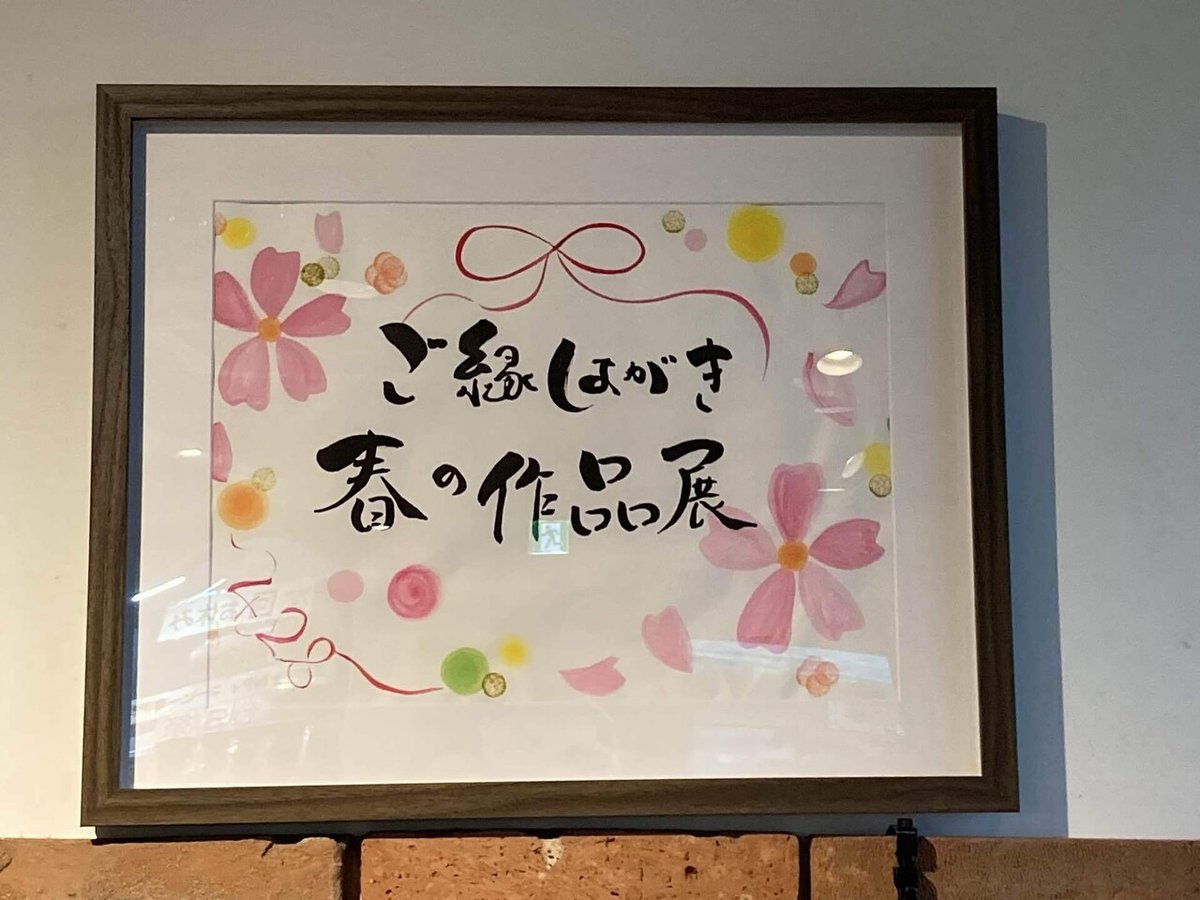 ご縁はがき
春の作品展